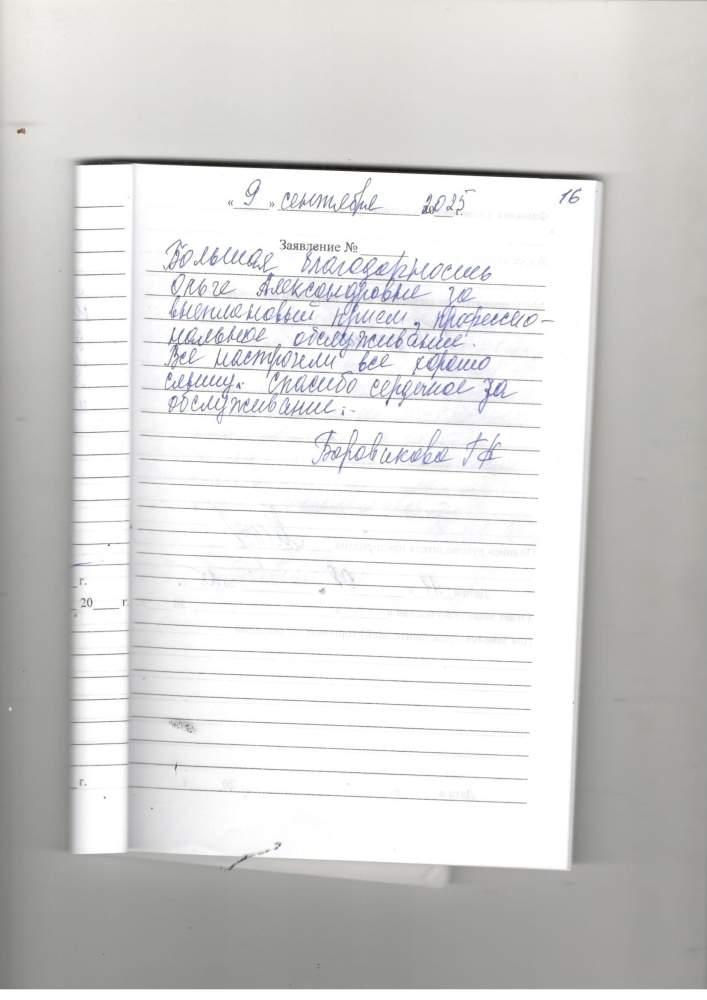 « 9 » сентября 2025 г.
16
Заявление №
Большая благодарность
Ольге Александровне за
внеплановый прием, профессио-
нальное обслуживание.
Все настроили все хорошо
слышу. Спасибо сердечное за
обслуживание.
Боровикова Г
г.
20 г.
г.